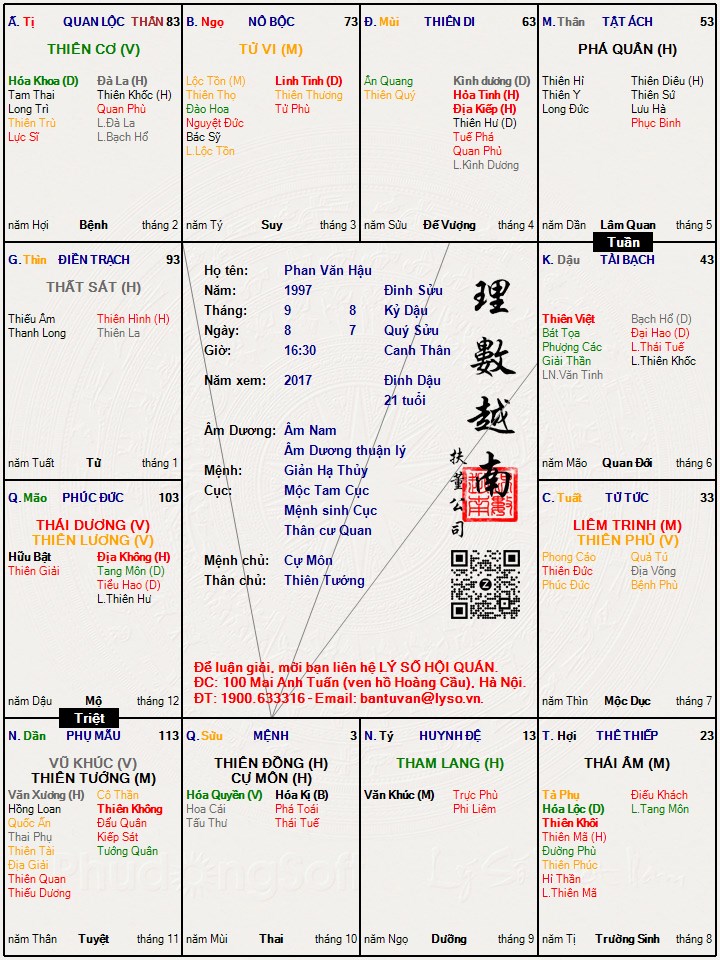 Ă. Tị QUAN LỘC THÂN 83
THIÊN CƠ (V)
Hóa Khoa (D) Đà La (H)
Tam Thai Thiên Khốc (H)
Long Trì Quan Phù
Thiên Trù L.Đà La
Lực Sĩ L.Bạch Hổ
năm Hợi Bệnh tháng 2
B. Ngọ NÔ BỘC 73
TỬ VI (M)
Lộc Tồn (M) Linh Tinh (D)
Thiên Thọ Thiên Thương
Đào Hoa Tử Phù
Nguyệt Đức
Bác Sỹ
L.Lộc Tồn
năm Tý Suy tháng 3
Đ. Mùi THIÊN DI 63
Ân Quang Kình dương (D)
Thiên Quý Hỏa Tinh (H)
Địa Kiếp (H)
Thiên Hư (D)
Tuế Phá
Quan Phủ
L.Kình Dương
năm Sửu Đế Vượng tháng 4
M. Thân TẬT ÁCH 53
PHÁ QUÂN (H)
Thiên Hỉ Thiên Diêu (H)
Thiên Y Thiên Sứ
Long Đức Lưu Hà
Phục Binh
năm Dần Lâm Quan tháng 5
Tuần
G. Thìn ĐIỀN TRẠCH 93
THẤT SÁT (H)
Thiếu Âm Thiên Hình (H)
Thanh Long Thiên La
năm Tuất Tử tháng 1
Họ tên: Phan Văn Hậu
Năm: 1997 Đinh Sửu
Tháng: 9 8 Kỷ Dậu
Ngày: 8 7 Quý Sửu
Giờ: 16:30 Canh Thân
Năm xem: 2017 Đinh Dậu
21 tuổi
Âm Dương: Âm Nam
Âm Dương thuận lý
Mệnh: Giản Hạ Thủy
Cục: Mộc Tam Cục
Mệnh sinh Cục
Thân cư Quan
Mệnh chủ: Cự Môn
Thân chủ: Thiên Tướng
理數越南
扶董公司
Để luận giải, mời bạn liên hệ LÝ SỐ HỘI QUÁN.
ĐC: 100 Mai Anh Tuấn (ven hồ Hoàng Cầu), Hà Nội.
ĐT: 1900.633316 - Email: bantuvan@lyso.vn.
K. Dậu TÀI BẠCH 43
Thiên Việt Bạch Hổ (D)
Bát Tọa Đại Hao (D)
Phượng Các L.Thái Tuế
Giải Thần L.Thiên Khốc
LN.Văn Tinh
năm Mão Quan Đới tháng 6
Q. Mão PHÚC ĐỨC 103
THÁI DƯƠNG (V)
THIÊN LƯƠNG (V)
Hữu Bật Địa Không (H)
Thiên Giải Tang Môn (D)
Tiểu Hao (D)
L.Thiên Hư
năm Dậu Mộ tháng 12
C. Tuất TỬ TỨC 33
LIÊM TRINH (M)
THIÊN PHỦ (V)
Phong Cáo Quả Tú
Thiên Đức Địa Võng
Phúc Đức Bệnh Phù
năm Thìn Mộc Dục tháng 7
Triệt
N. Dần PHỤ MẪU 113
VŨ KHÚC (V)
THIÊN TƯỚNG (M)
Văn Xương (H) Cô Thần
Hồng Loan Thiên Không
Quốc Ấn Đẩu Quân
Thai Phụ Kiếp Sát
Thiên Tài Tướng Quân
Địa Giải
Thiên Quan
Thiếu Dương
năm Thân Tuyệt tháng 11
Q. Sửu MỆNH 3
THIÊN ĐỒNG (H)
CỰ MÔN (H)
Hóa Quyền (V) Hóa Kị (B)
Hoa Cái Phá Toái
Tấu Thư Thái Tuế
năm Mùi Thai tháng 10
N. Tý HUYNH ĐỆ 13
THAM LANG (H)
Văn Khúc (M) Trực Phù
Phi Liêm
năm Ngọ Dưỡng tháng 9
T. Hợi THÊ THIẾP 23
THÁI ÂM (M)
Tả Phụ Điếu Khách
Hóa Lộc (D) L.Tang Môn
Thiên Khôi
Thiên Mã (H)
Đường Phù
Thiên Phúc
Hỉ Thần
L.Thiên Mã
năm Tị Trường Sinh tháng 8